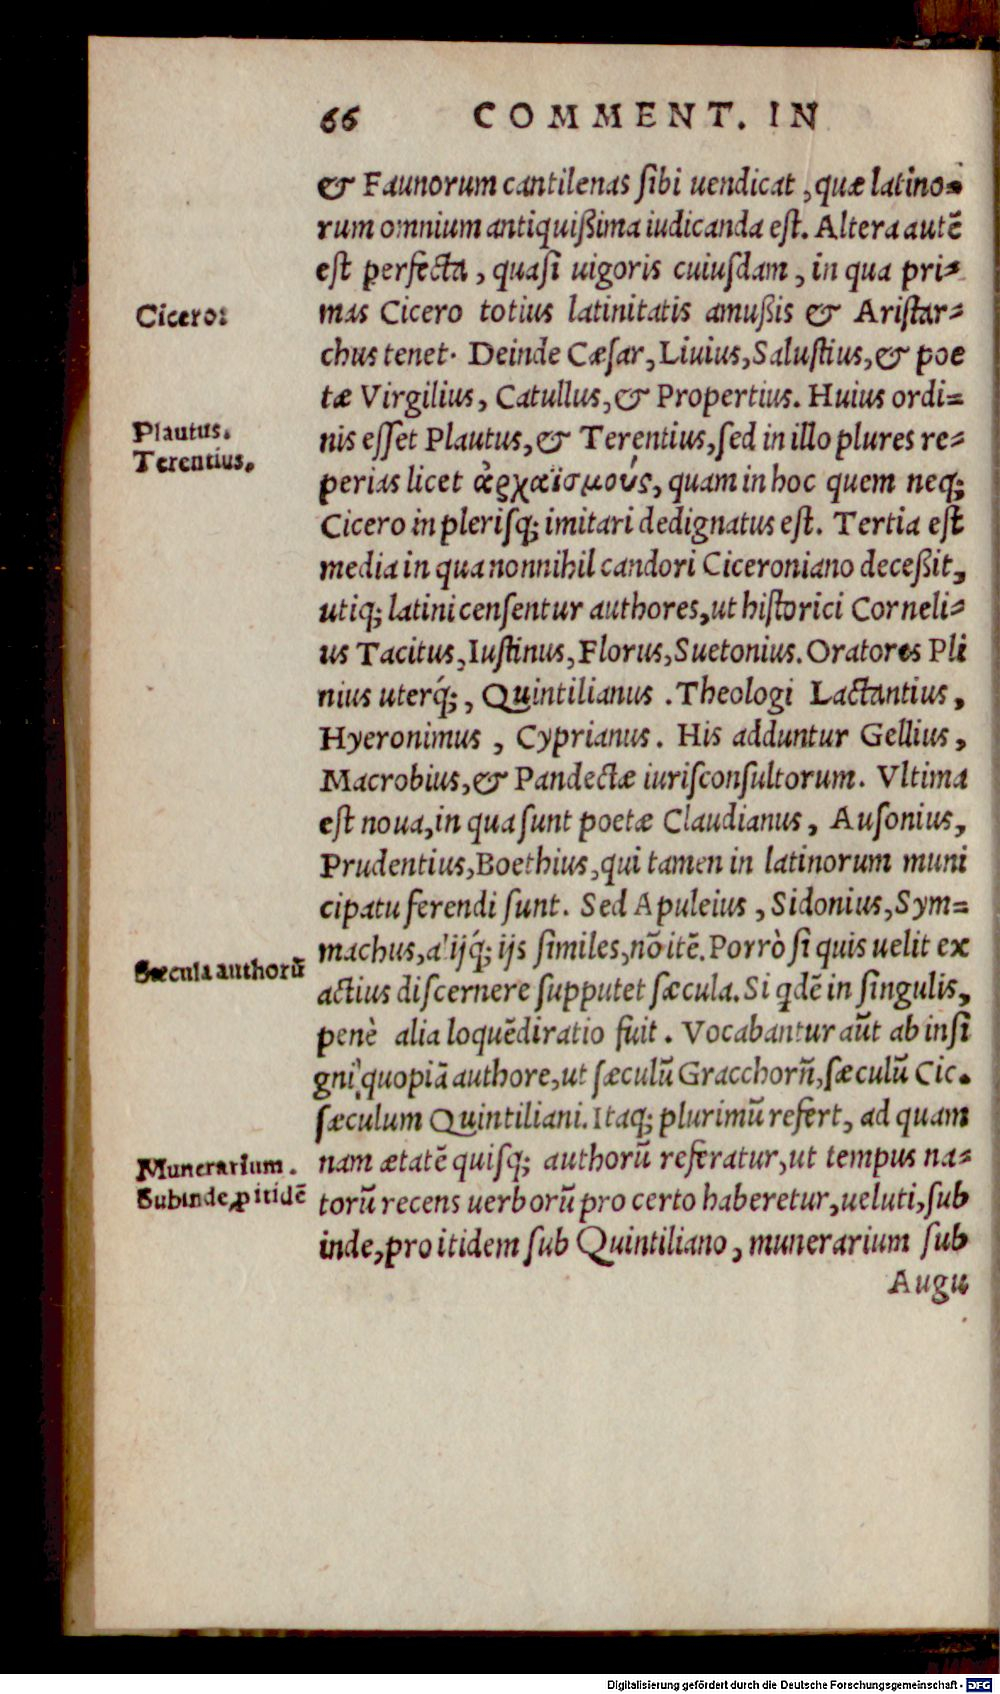 66 COMMENT. IN
& Faunorum cantilenas ſibi uendicat, quæ latino=
rum omnium antiquißima iudicanda eſt. Altera autē
eſt perfecta, quaſi uigoris cuiuſdam, in qua pri=
Cicero:
mas Cicero totius latinitatis amußis & Ariſtar=
chus tenet. Deinde Cæſar, Liuius, Saluſtius, & poe
tæ Virgilius, Catullus, & Propertius. Huius ordi=
Plautus.
nis eſſet Plautus, & Terentius, ſed in illo plures re=
Terentius.
perias licet ἀρχαϊσμούς, quam in hoc quem neq;
Cicero in pleriſq; imitari dedignatus eſt. Tertia eſt
media in qua nonnihil candori Ciceroniano deceßit,
utiq; latini cenſentur authores, ut hiſtorici Corneli=
us Tacitus, Iuſtinus, Florus, Suetonius. Oratores Pli
nius uterq́;, Quintilianus. Theologi Lactantius,
Hyeronimus, Cyprianus. His adduntur Gellius,
Macrobius, & Pandectæ iuriſconſultorum. Vltima
eſt noua, in qua ſunt poetæ Claudianus, Auſonius,
Prudentius, Boethius, qui tamen in latinorum muni
cipatu ferendi ſunt. Sed Apuleius, Sidonius, Sym=
machus, alijq́; ijs ſimiles, nō itē. Porrò ſi quis uelit ex
Sæcula authorū
actius diſcernere ſupputet ſæcula. Si qdē in ſingulis,
penè alia loquēdi ratio fuit. Vocabantur aūt ab inſi
gni quopiā authore, ut ſæculū Gracchorū, ſæculū Cic.
ſæculum Quintiliani. Itaq; plurimū refert, ad quam
Munerarium.
nam ætatē quiſq; authorū referatur, ut tempus na=
Subinde, ꝓ itidē
torū recens uerborū pro certo haberetur, ueluti, ſub
inde, pro itidem ſub Quintiliano, munerarium ſub
Augu
Digitalisierung gefördert durch die Deutsche Forschungsgemeinschaft - DFG